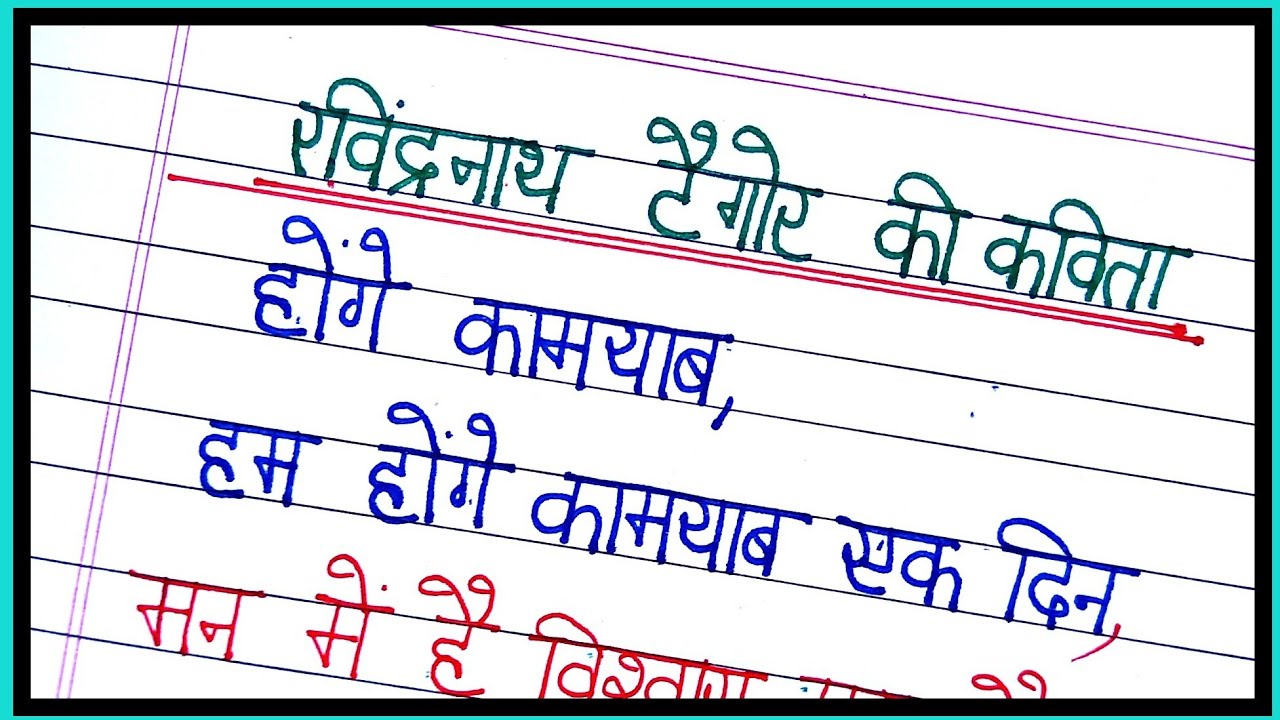 रविंद्रनाथ टैगोर की कविता
होंगे कामयाब,
हम होंगे कामयाब एक दिन,
मन में है विश्वास